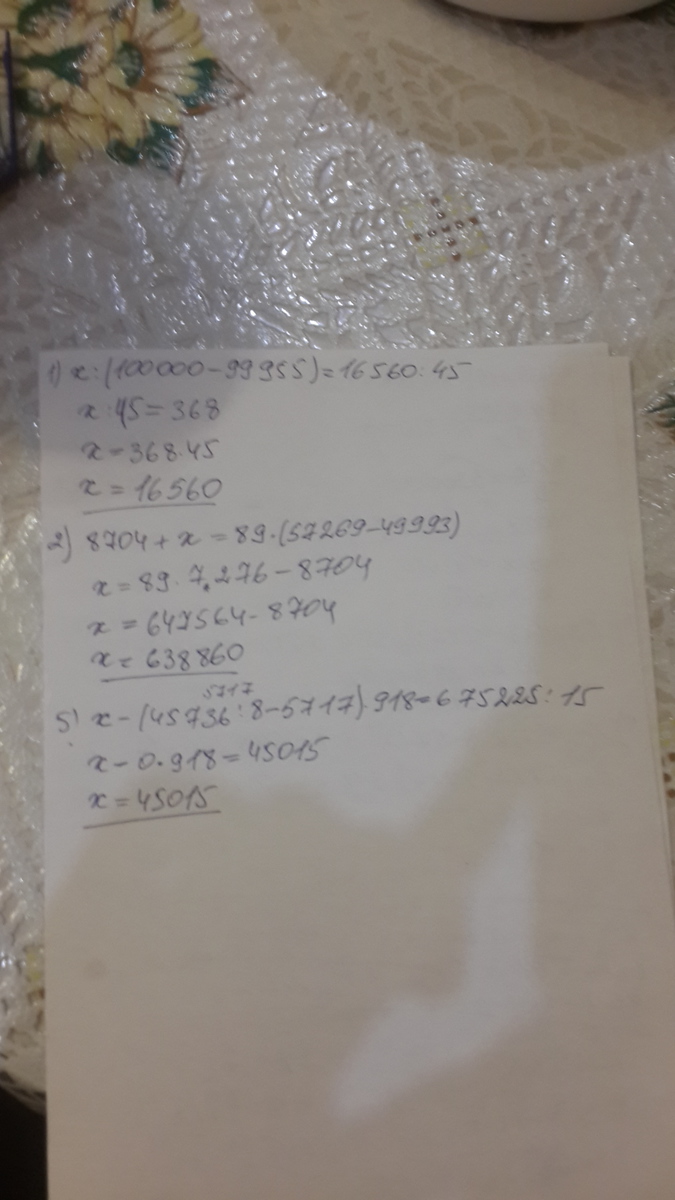 1) x:(100000-99955)=16560:45
x:45=368
x=368·45
x=16560
2) 8704+x=89·(57269-49993)
x=89·7276-8704
x=647564-8704
x=638860
5717
5) x-(45736:8-5717)·918=675225:15
x-0·918=45015
x=45015